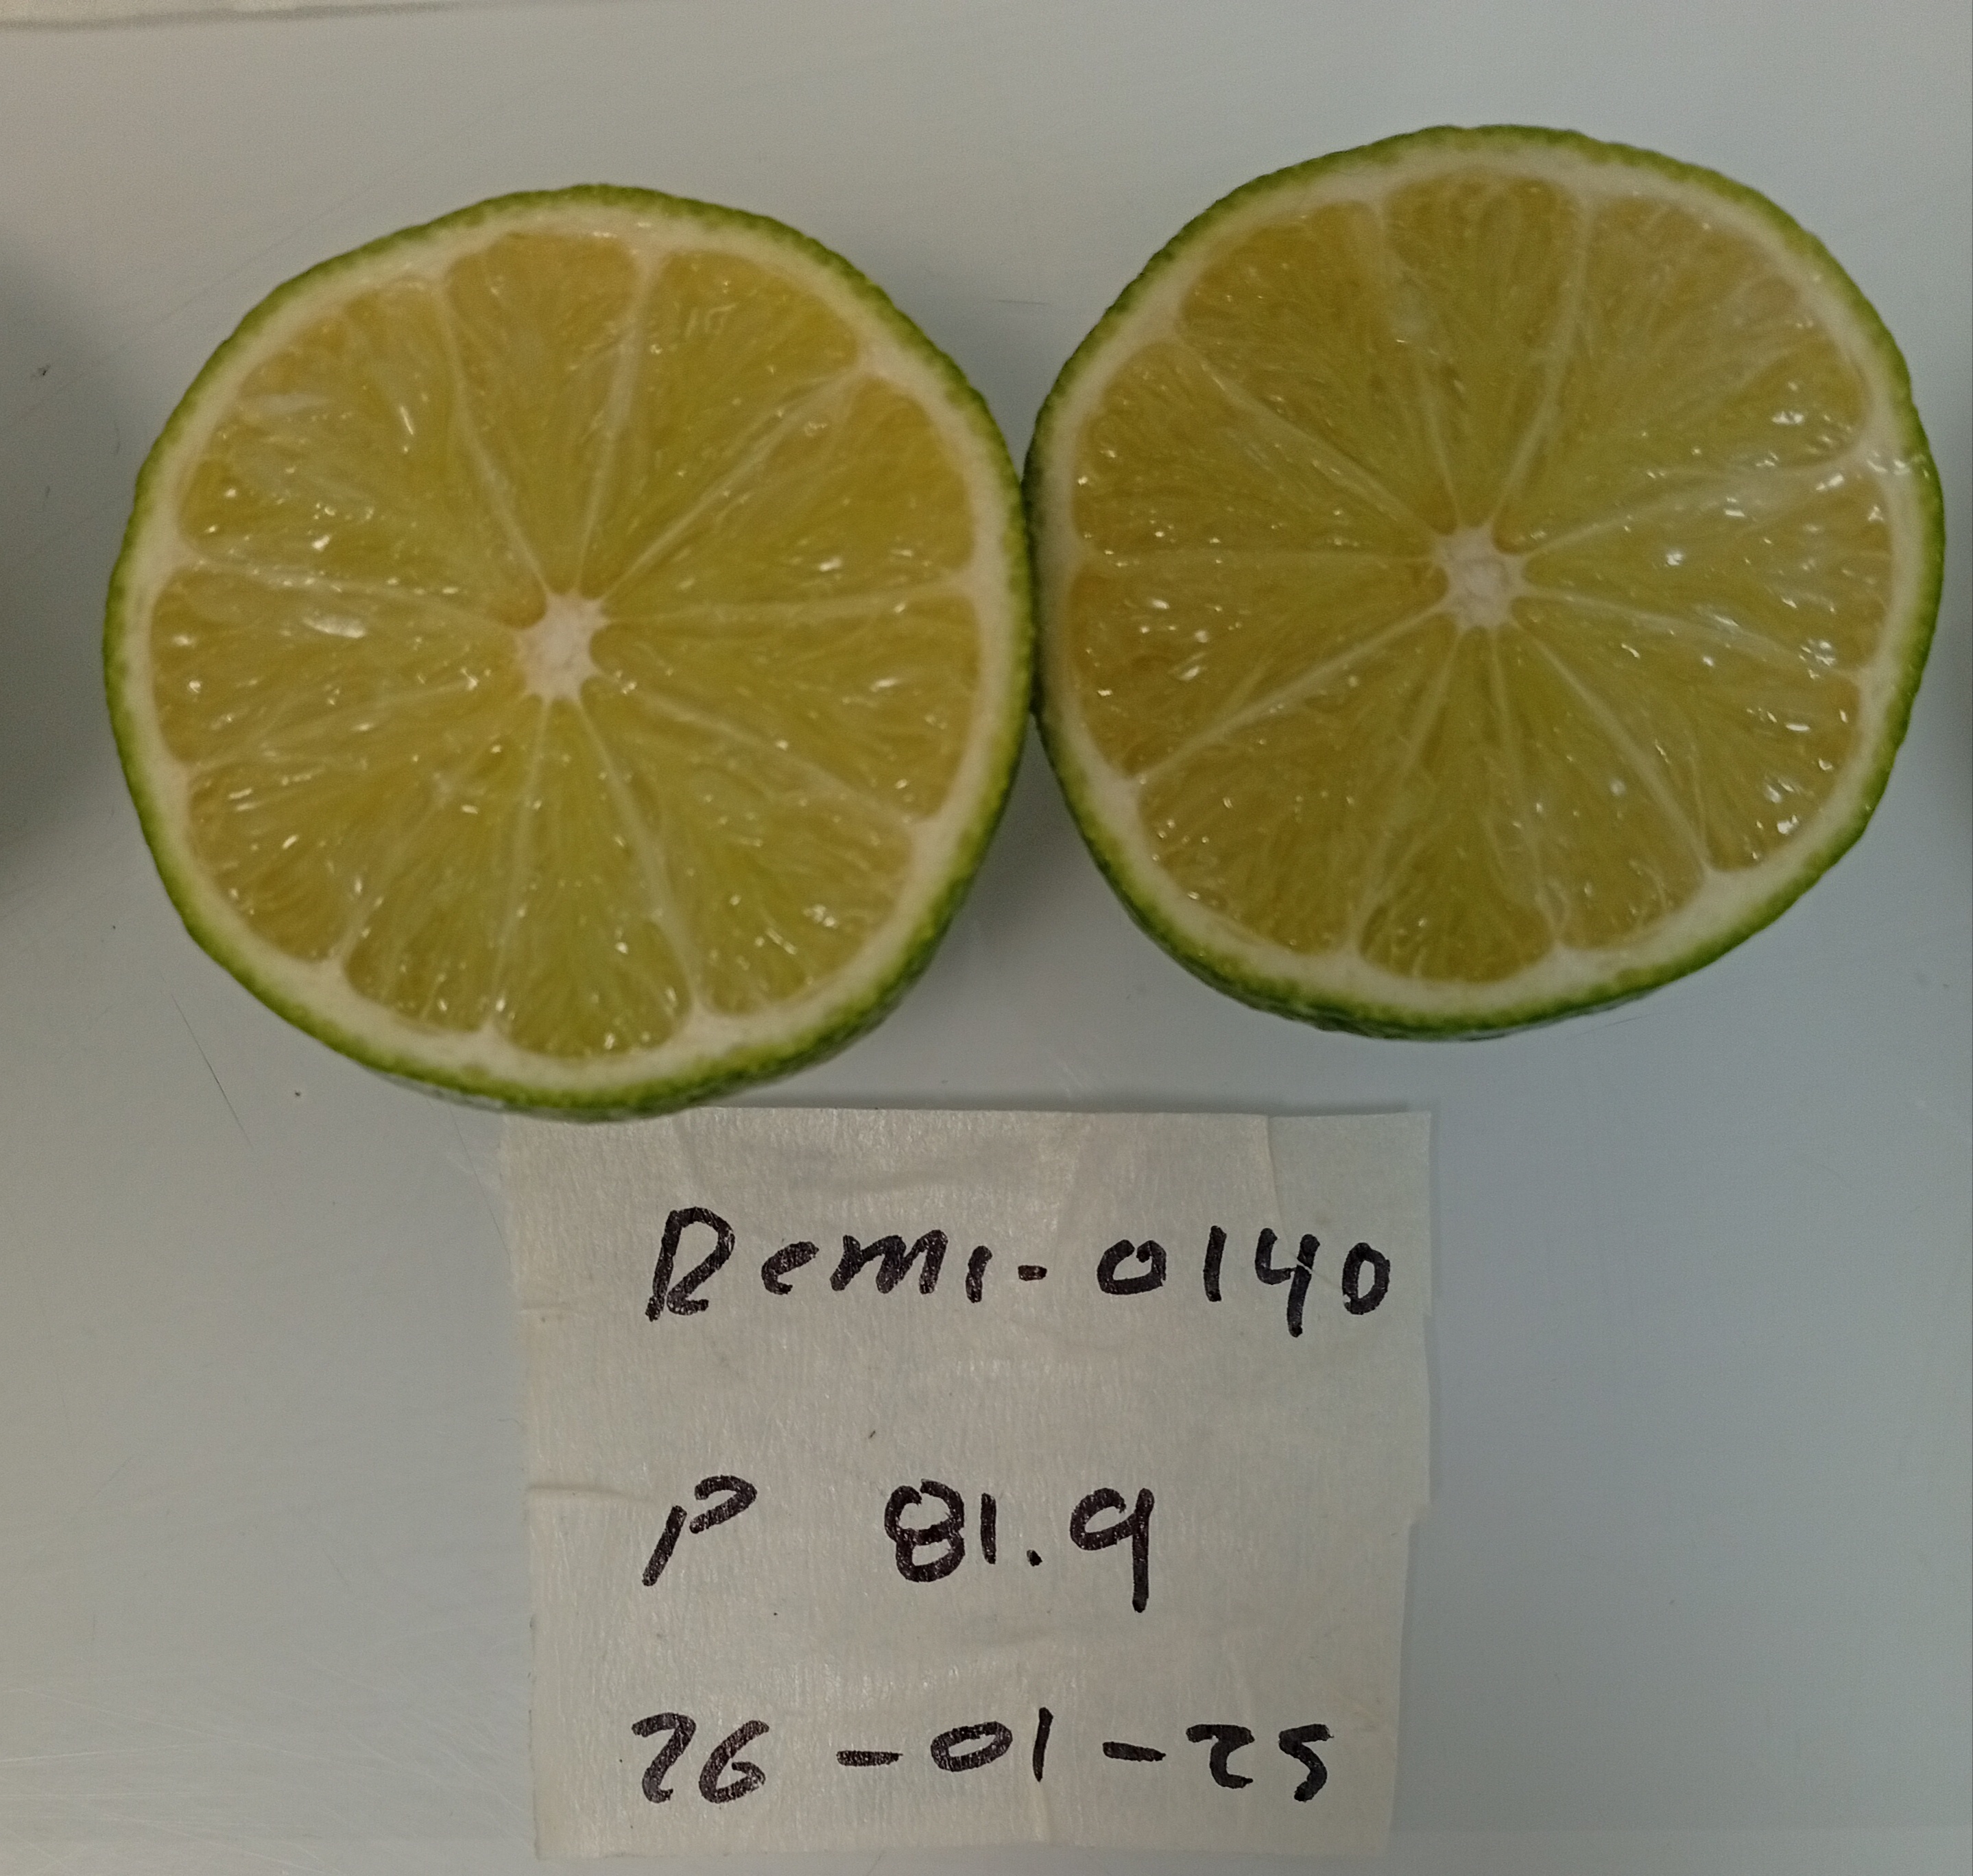 Remi-0140
P 81.9
26-01-25